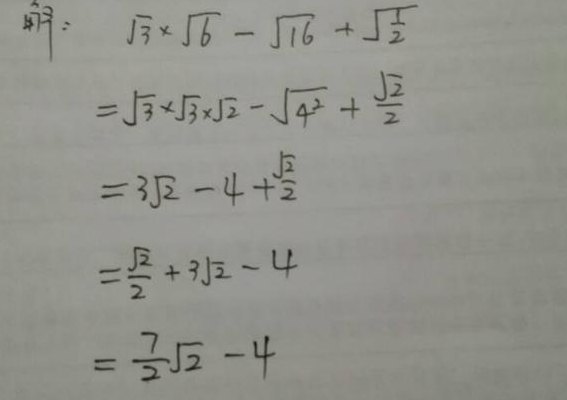 解: √3 × √6 − √16 + √(1/2)
= √3 × √3 × √2 − √(4²) + √2/2
= 3√2 − 4 + √2/2
= √2/2 + 3√2 − 4
= 7/2 √2 − 4